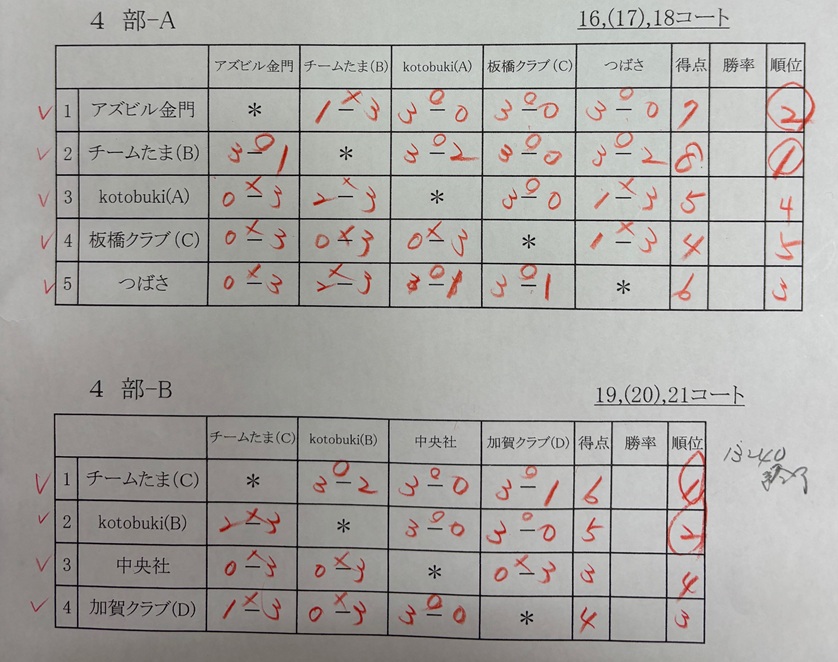 4 部-A 16,(17),18コート
アズビル金門 チームたま(B) kotobuki(A) 板橋クラブ(C) つばさ 得点 勝率 順位
✓ 1 アズビル金門 * 1×3 3○0 3○0 3○0 7 ②
✓ 2 チームたま(B) 3○1 * 3○2 3○0 3○2 8 ①
✓ 3 kotobuki(A) 0×3 2×3 * 3○0 1×3 5 4
✓ 4 板橋クラブ(C) 0×3 0×3 0×3 * 1×3 4 5
✓ 5 つばさ 0×3 2×3 3○1 3○1 * 6 3
4 部-B 19,(20),21コート
チームたま(C) kotobuki(B) 中央社 加賀クラブ(D) 得点 勝率 順位
✓ 1 チームたま(C) * 3○2 3○0 3○1 6 ①
13:40
✓ 2 kotobuki(B) 2×3 * 3○0 3○0 5 ②
✓ 3 中央社 0×3 0×3 * 0×3 3 4
✓ 4 加賀クラブ(D) 1×3 0×3 3○0 * 4 3